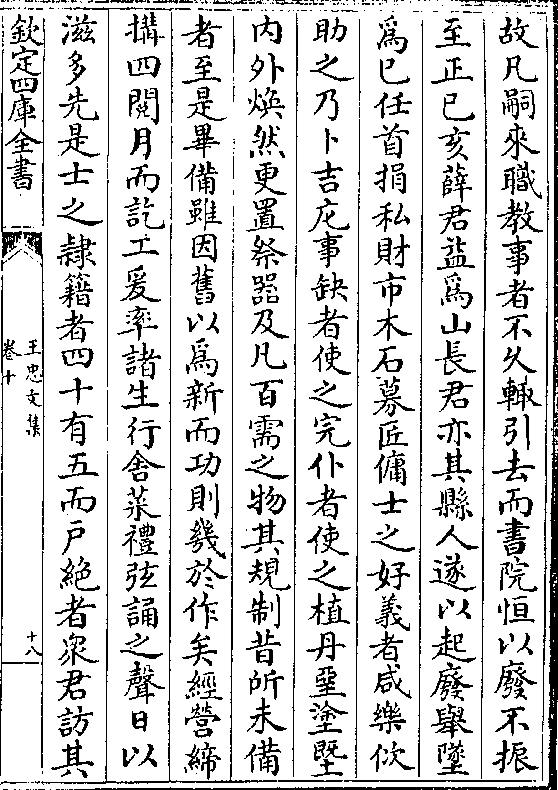 故凡嗣來職教事者不久輙引去而書院恒以廢不振
至正己亥薛君益為山長君亦其縣人遂以起廢舉墜
為已任首捐私財市木石募匠傭士之好義者咸樂佽
助之乃卜吉庀事缺者使之完仆者使之植丹堊塗塈
内外煥然更置祭器及凡百需之物其規制昔所未備
者至是畢備雖因舊以為新而功則幾於作矣經營締
搆四閱月而訖工爰率諸生行舍菜禮弦誦之聲日以
滋多先是士之隸籍者四十有五而戶絶者衆君訪其
欽定四庫全書
王忠文集
卷十
十八